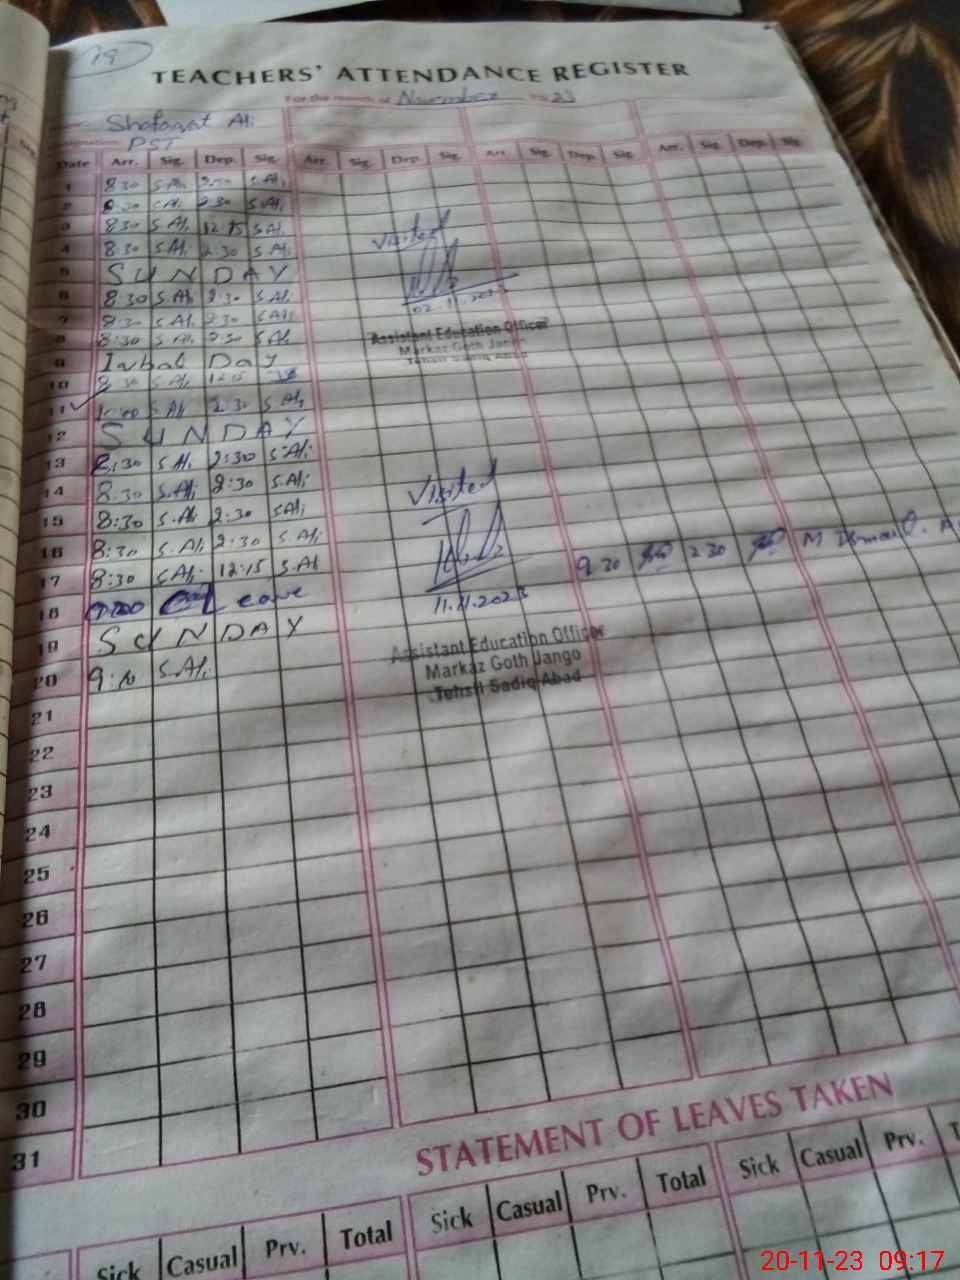 19
TEACHERS' ATTENDANCE REGISTER
For the month of November 23
Shafaqat Ali
PST
Date Arr. Sig. Dep. Sig. Arr. Sig. Dep. Sig. Arr. Sig. Dep. Sig. Arr. Sig. Dep. Sig.
1 8:30 S.Ali S.Ali
2 8:30 S.Ali 2:30 S.Ali
3 8:30 S.Ali 12:15 S.Ali
Visited
4 8:30 S.Ali 2:30 S.Ali
5 SUNDAY
6 8:30 S.Ali 2:30 S.Ali
02.11.2023
7 8:30 S.Ali 2:30 S.Ali
8 8:30 S.Ali 2:30 S.Ali
Assistant Education Officer
Markaz Goth Jango
Tehsil Sadiq Abad
9 Iqbal Day
10 8:30 S.Ali 12:15
11 S.Ali 2:30 S.Ali
12 SUNDAY
13 8:30 S.Ali 2:30 S.Ali
14 8:30 S.Ali 2:30 S.Ali
Visited
15 8:30 S.Ali 2:30 S.Ali
16 8:30 S.Ali 2:30 S.Ali
17 8:30 S.Ali 12:15 S.Ali
9:30 2:30 M Ismail.
18 Leave
11.11.2023
19 SUNDAY
20 9:10 S.Ali
Assistant Education Officer
Markaz Goth Jango
Tehsil Sadiq Abad
21
22
23
24
25
26
27
28
29
30
31
STATEMENT OF LEAVES TAKEN
Sick Casual Prv. Total Sick Casual Prv. Total Sick Casual Prv.
20-11-23 09:17